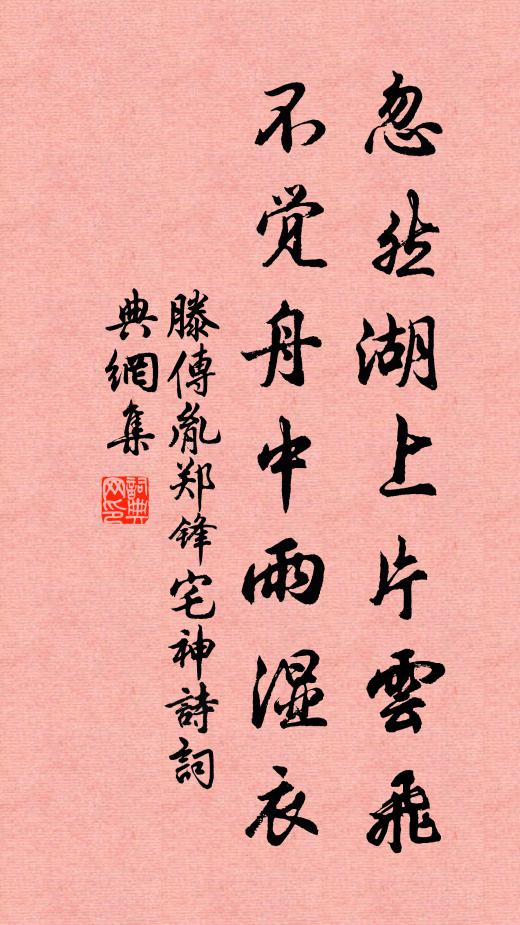 忽然湖上片雲飛
不觉舟中雨湿衣
滕傳胤郑锋宅神詩詞
典網集
詞典网印